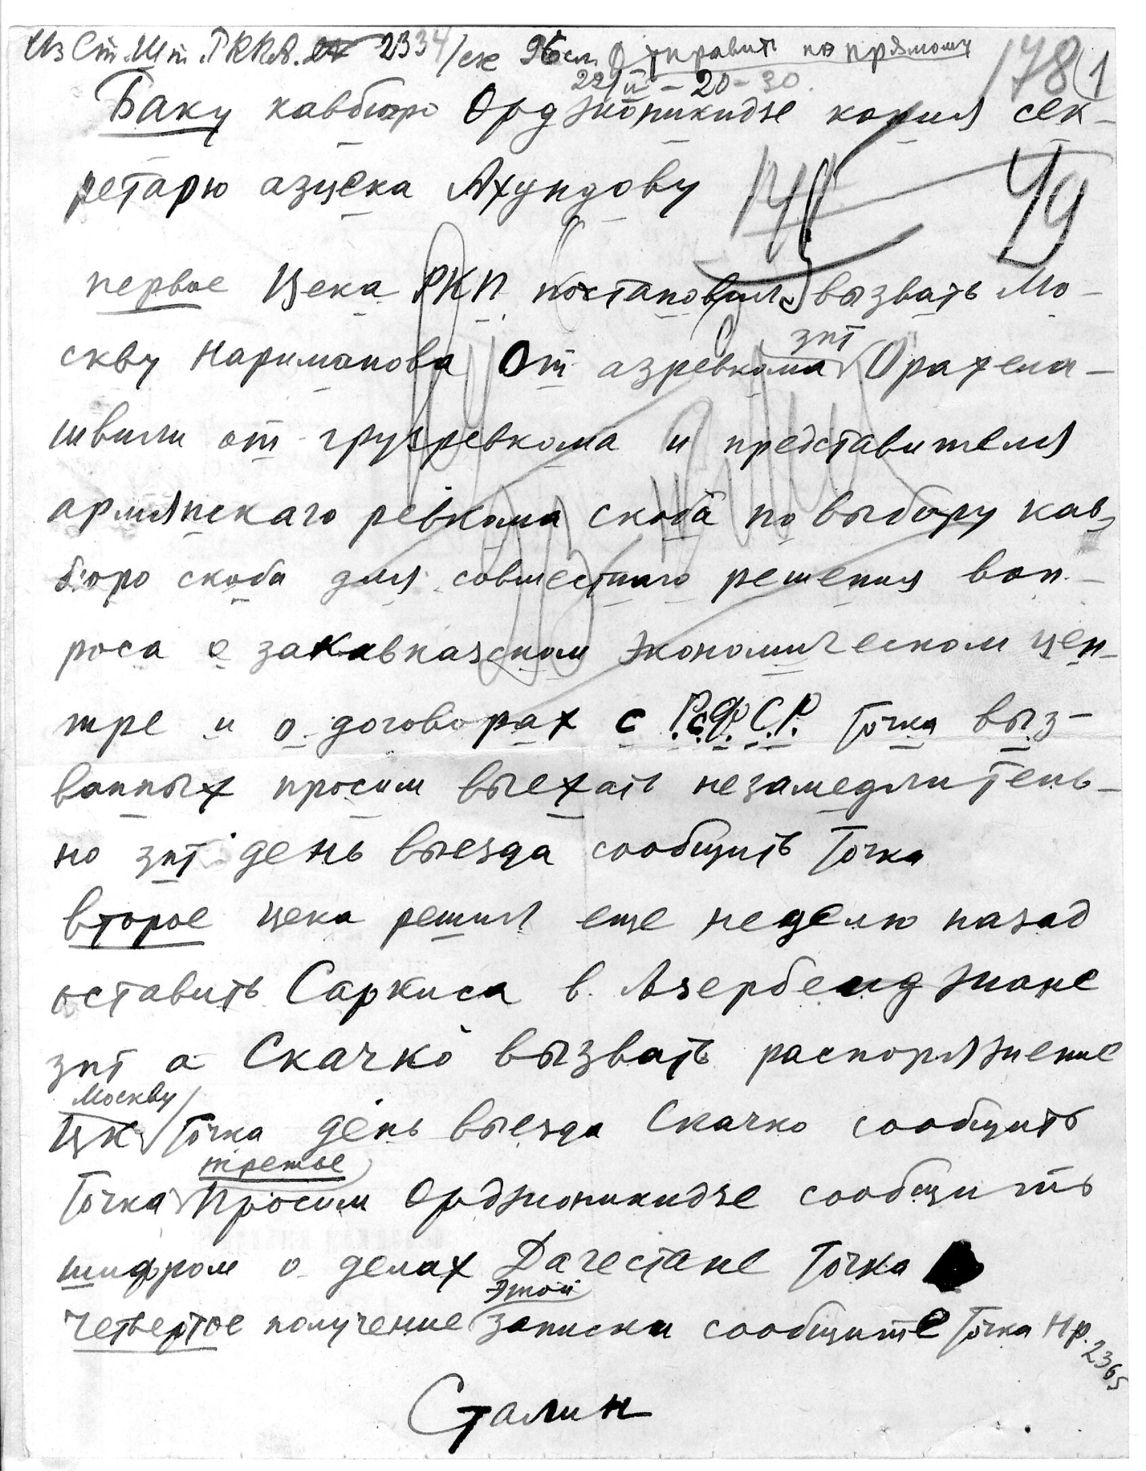 Из Ст. Шт. РККА. 2334/сж 96 сл. Отправить по прямому
22/II – 20-30. 178 (1
Баку кавбюро Орджоникидзе копия сек-
ретарю азцека Ахундову 49
первое Цека РКП постановил вызвать Мо-
скву Нариманова от азревкома зпт Орахела-
швили от грузревкома и представителя
армянскаго ревкома скоба по выбору кав-
бюро скоба для совместнаго решения воп-
роса о закавказском экономическом цен-
тре и о договорах с Р.С.Ф.С.Р. Точка выз-
ванных просим выехать незамедлитель-
но зпт день выезда сообщить Точка
второе цека решил еще неделю назад
оставить Саркиса в Азербейджане
зпт а Скачко вызвать распоряжение
Москву
ЦК Точка день выезда Скачко сообщить
третье
Точка Просим Орджоникидзе сообщить
шифром о делах Дагестане Точка
этой
четвертое получение записки сообщите Точка Нр. 2365
Сталин